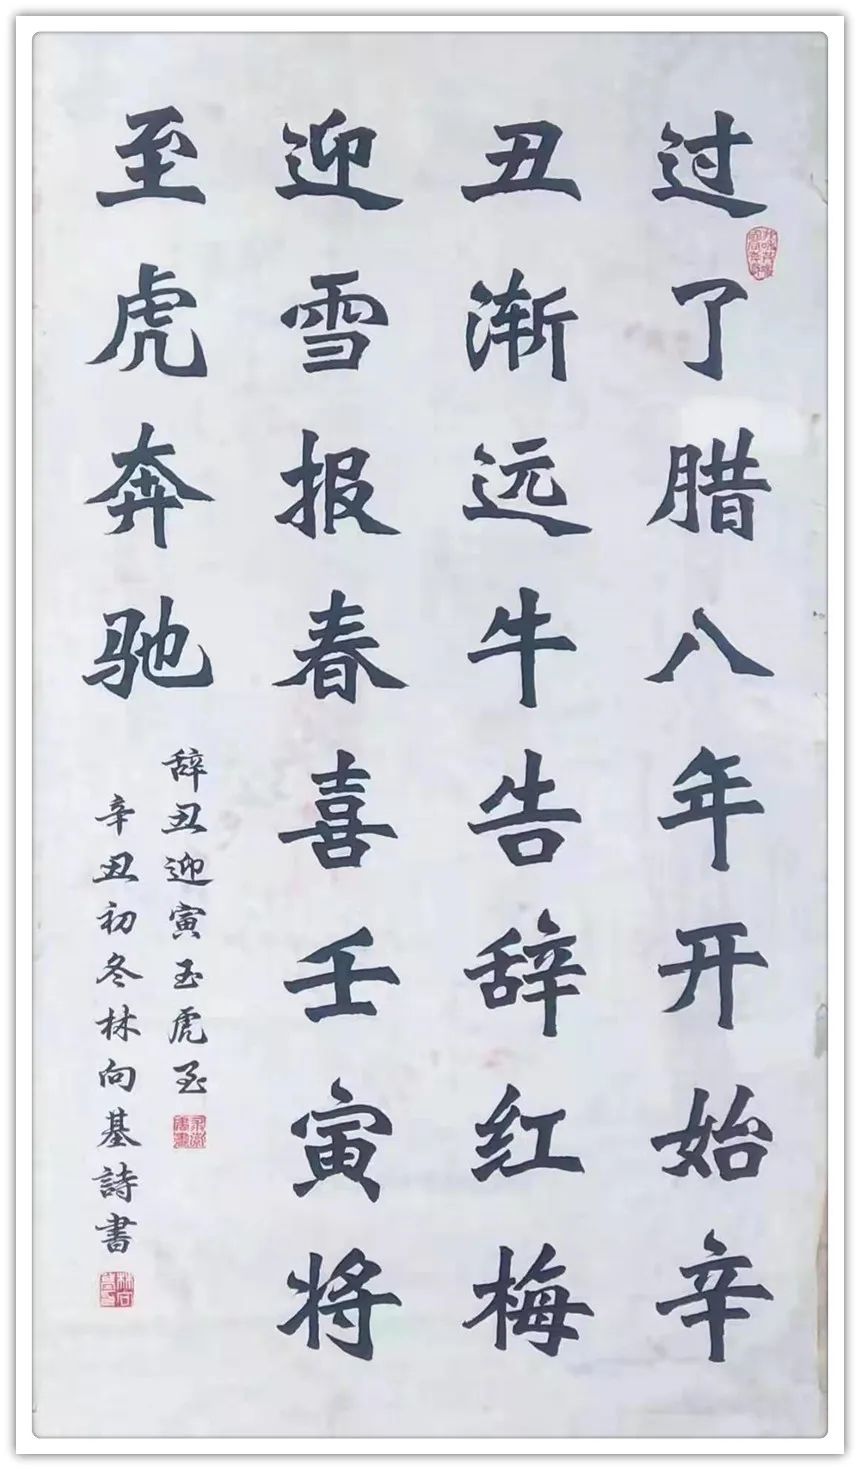 过了腊八年开始辛
丑渐远牛告辞红梅
迎雪报春喜壬寅将
至虎奔驰
辞丑迎寅玉虎至
辛丑初冬林向基詩書